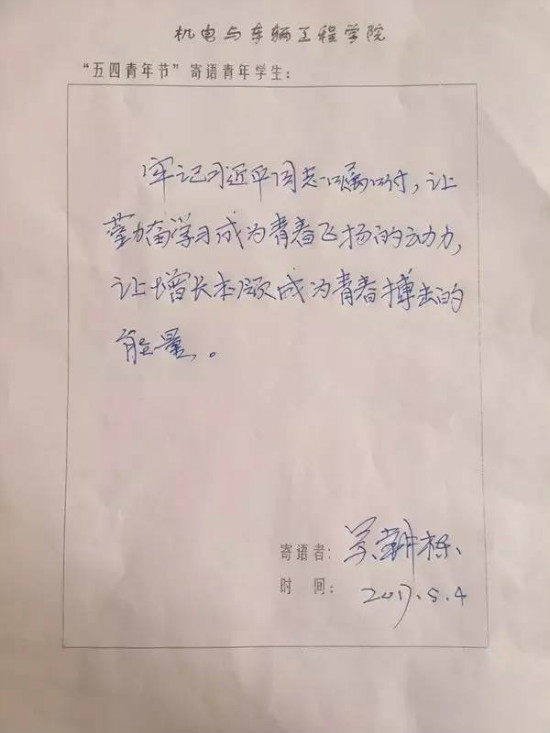 机电与车辆工程学院
“五四青年节”寄语青年学生：
牢记习近平同志嘱咐，让
勤奋学习成为青春飞扬的动力，
让增长本领成为青春搏击的
能量。
寄语者：
时 间：2017.5.4